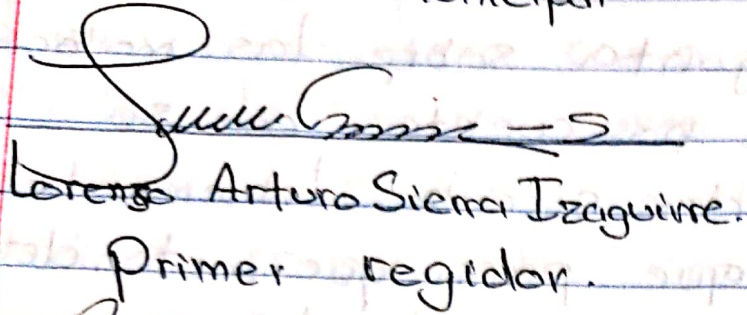 Lorenzo Arturo Sierra Izaguirre.
Primer regidor.